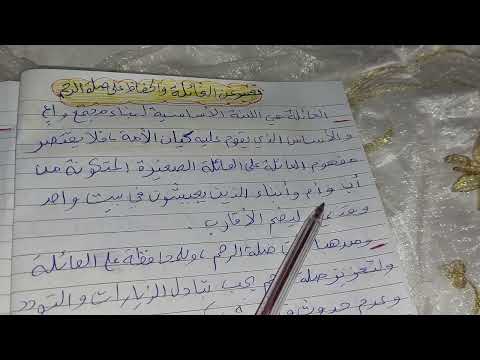 تعبير عن العائلة والحفاظ على صلة الرحم
العائلة هي اللبنة الأساسية لبناء مجتمع واع
والأساس الذي يقوم عليه كيان الأمة، فلا يقتصر
مفهوم العائلة على العائلة الصغيرة المتكونة من
أب وأم وأبناء الذين يعيشون في بيت واحد
ليضم الأقارب.
صلة الرحم، وللمحافظة على العائلة
ولتعزيز صلة يجب تبادل الزيارات والتودد
وعدم